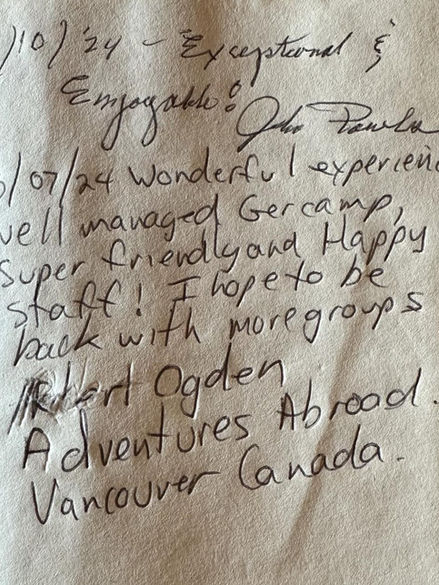 /10/'24 - Exceptional &
Enjoyable! John
/07/24 Wonderful experienc
well managed Gercamp,
super friendly and Happy
staff! I hope to be
back with more groups
Ogden
Adventures Abroad.
Vancouver Canada.